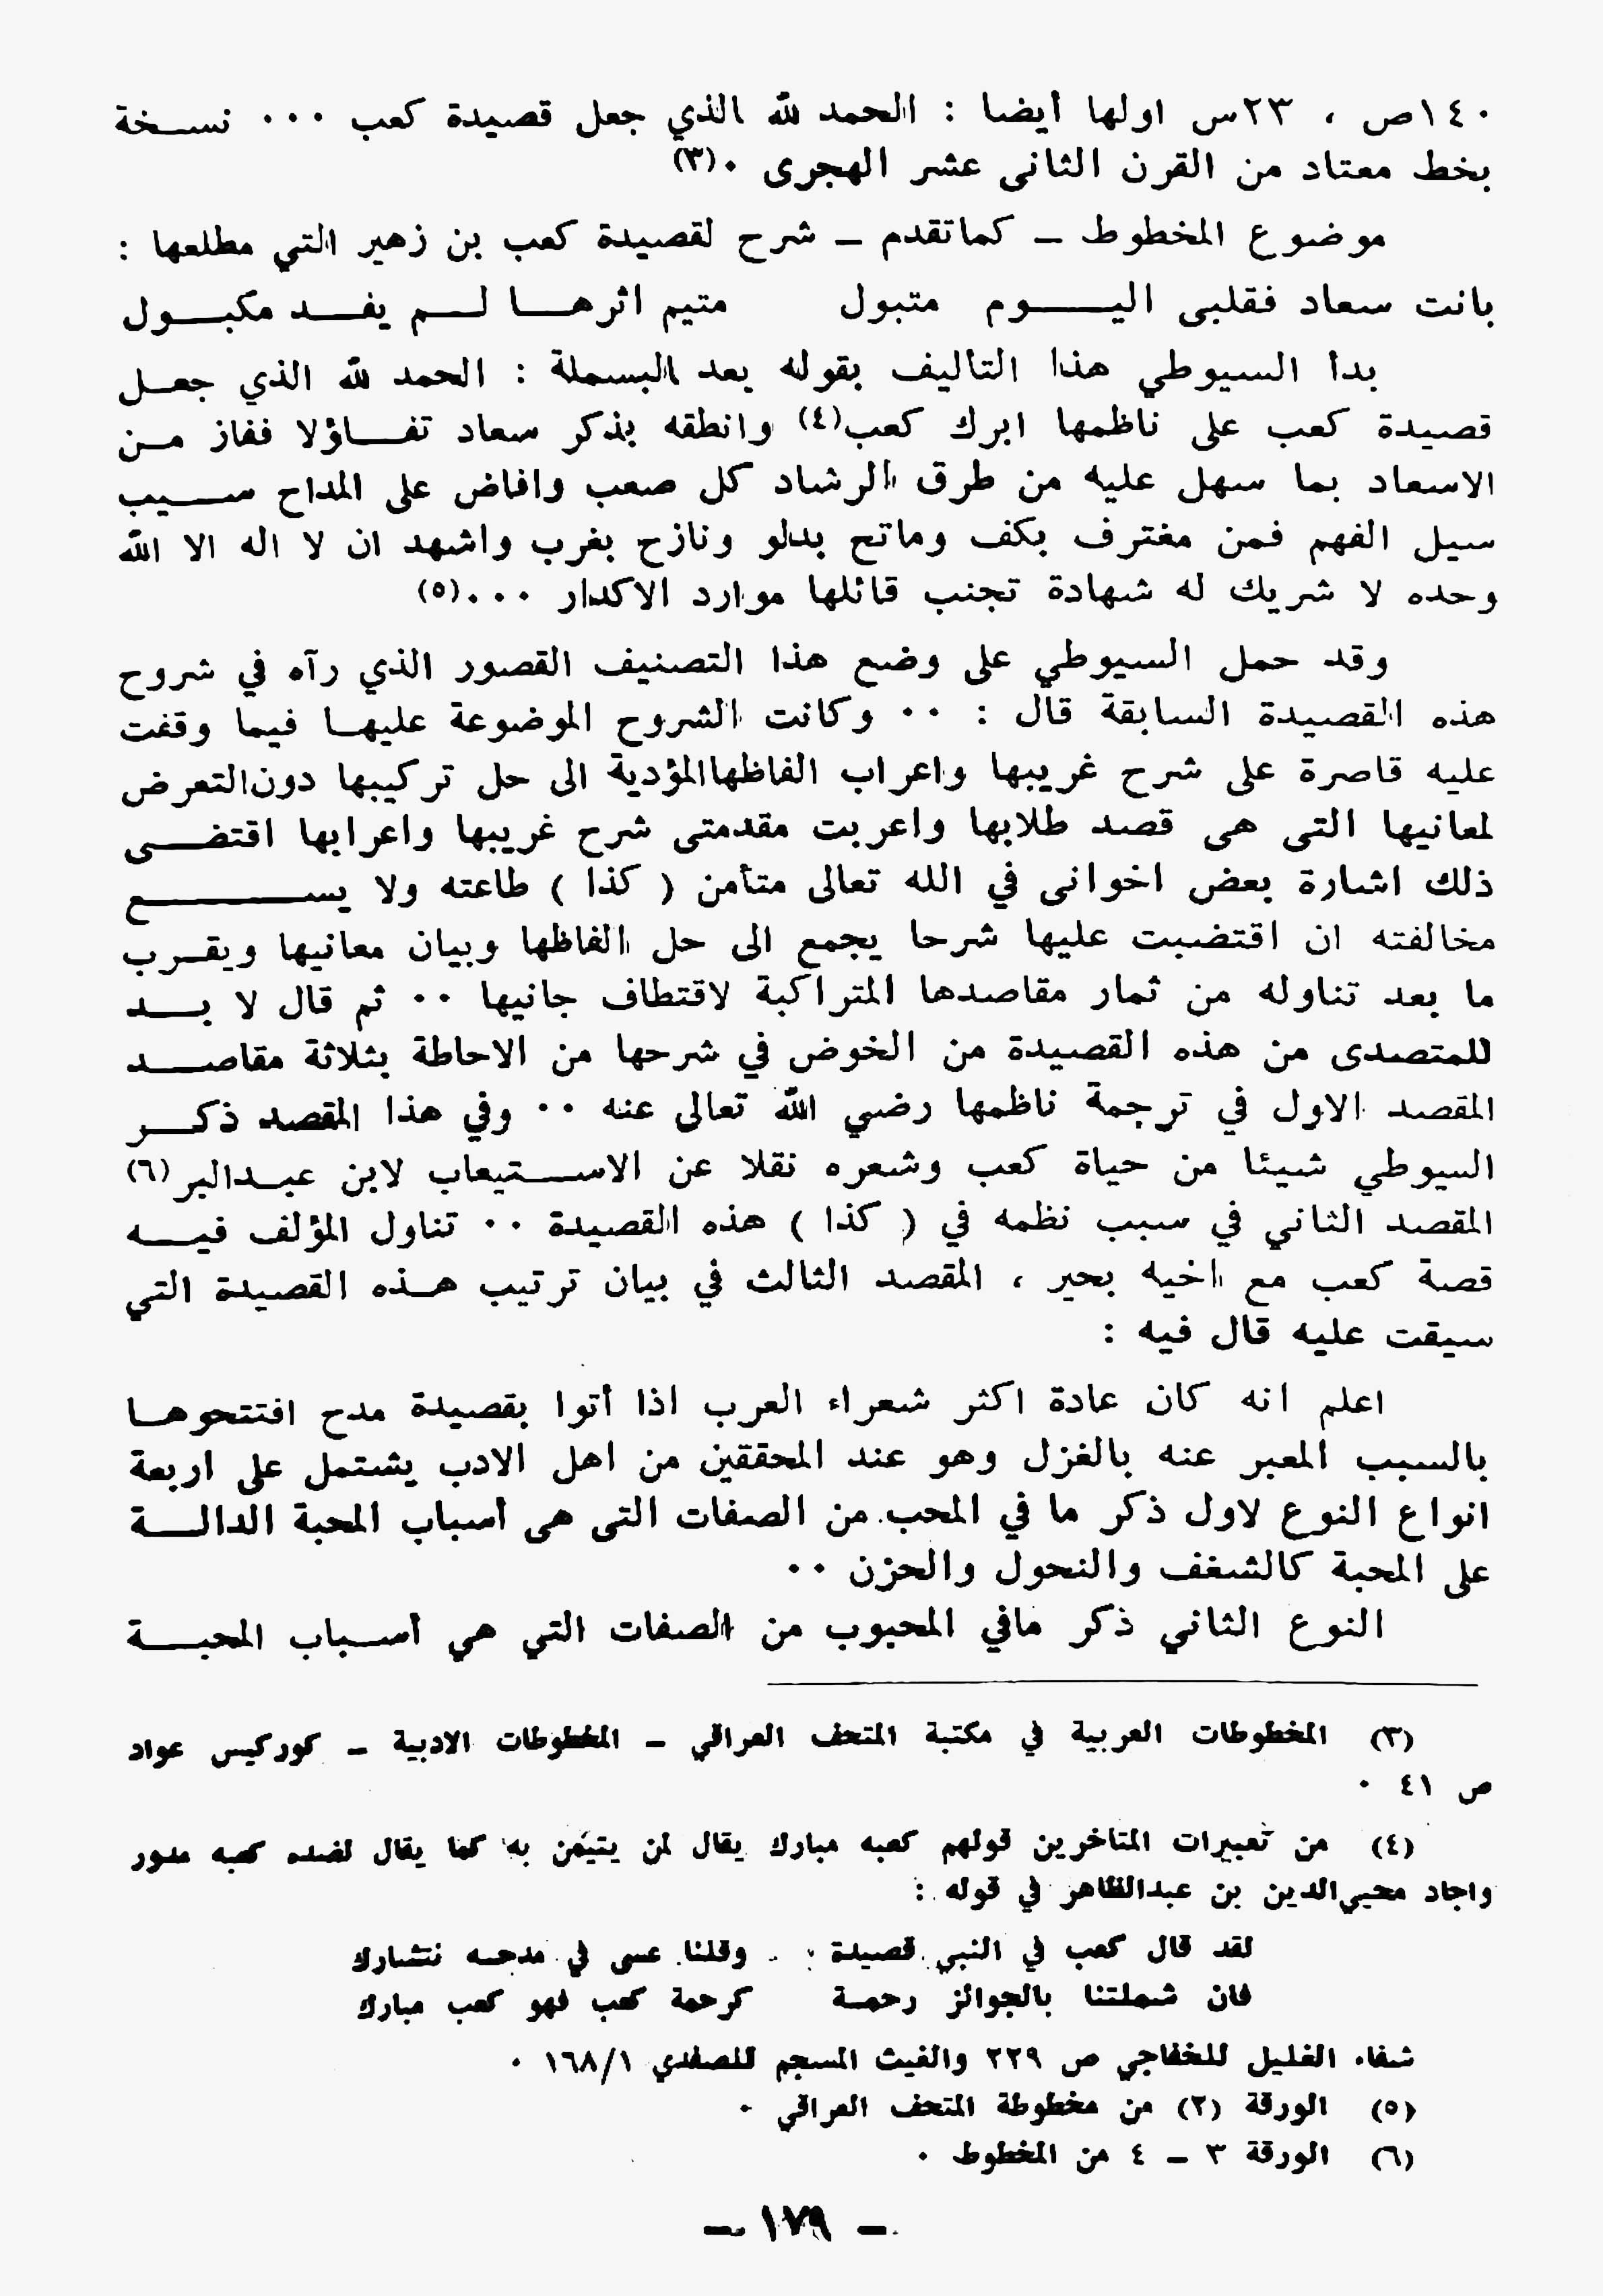 ١٤٠ص ، ٢٣س اولها أيضا : الحمد لله الذي جعل قصيدة كعب ٠٠٠ نسخة
بخط معتاد من القرن الثانى عشر الهجرى ٠(٣)
موضوع المخطوط ــ كماتقدم ــ شرح لقصيدة كعب بن زهير التي مطلعها :
بانت سعاد فقلبى اليوم متبول متيم اثرها لم يفد مكبول
بدأ السيوطي هذا التأليف بقوله بعد البسملة : الحمد لله الذي جعل
قصيدة كعب على ناظمها ابرك كعب(٤) وانطقه بذكر سعاد تفاؤلا ففاز من
الاسعاد بما سهل عليه من طرق الرشاد كل صعب وافاض على المداح سيب
سيل الفهم فمن مغترف بكف وماتح بدلو ونازح بغرب واشهد ان لا اله الا الله
وحده لا شريك له شهادة تجنب قائلها موارد الاكدار ٠٠٠(٥)
وقد حمل السيوطي على وضع هذا التصنيف القصور الذي رآه في شروح
هذه القصيدة السابقة قال : ٠٠ وكانت الشروح الموضوعة عليها فيما وقفت
عليه قاصرة على شرح غريبها واعراب الفاظهاالمؤدية الى حل تركيبها دون‌التعرض
لمعانيها التى هى قصد طلابها واعربت مقدمتى شرح غريبها واعرابها اقتضى
ذلك اشارة بعض اخوانى في الله تعالى متأمن ( كذا ) طاعته ولا يسع
مخالفته ان اقتضبت عليها شرحا يجمع الى حل الفاظها وبيان معانيها ويقرب
ما بعد تناوله من ثمار مقاصدها المتراكبة لاقتطاف جانيها ٠٠ ثم قال لا بد
للمتصدى من هذه القصيدة من الخوض في شرحها من الاحاطة بثلاثة مقاصد
المقصد الاول في ترجمة ناظمها رضي الله تعالى عنه ٠٠ وفي هذا المقصد ذكر
السيوطي شيئا من حياة كعب وشعره نقلا عن الاستيعاب لابن عبدالبر(٦)
المقصد الثاني في سبب نظمه في ( كذا ) هذه القصيدة ٠٠ تناول المؤلف فيه
قصة كعب مع اخيه بحير ، المقصد الثالث في بيان ترتيب هذه القصيدة التي
سيقت عليه قال فيه :
اعلم انه كان عادة اكثر شعراء العرب اذا أتوا بقصيدة مدح افتتحوها
بالسبب المعبر عنه بالغزل وهو عند المحققين من اهل الادب يشتمل على اربعة
انواع النوع لاول ذكر ما في المحب من الصفات التى هى أسباب المحبة الدالة
على المحبة كالشغف والنحول والحزن ٠٠
النوع الثاني ذكر مافي المحبوب من الصفات التي هي أسباب المحبة
(٣) المخطوطات العربية في مكتبة المتحف العراقي ــ المخطوطات الادبية ــ كوركيس عواد
ص ٤١ ٠
(٤) من تعبيرات المتأخرين قولهم كعبه مبارك يقال لمن يتيمن به كما يقال لضده كعبه مدور
واجاد محيي‌الدين بن عبدالظاهر في قوله :
لقد قال كعب في النبي قصيدة وقلنا عسى في مدحه نتشارك
فان شملتنا بالجوائز رحمة كرحمة كعب فهو كعب مبارك
شفاء الغليل للخفاجي ص ٢٢٩ والغيث المسجم للصفدي ١٦٨/١ ٠
(٥) الورقة (٢) من مخطوطة المتحف العراقي ٠
(٦) الورقة ٣ ــ ٤ من المخطوط ٠
ــ ١٧٩ ــ